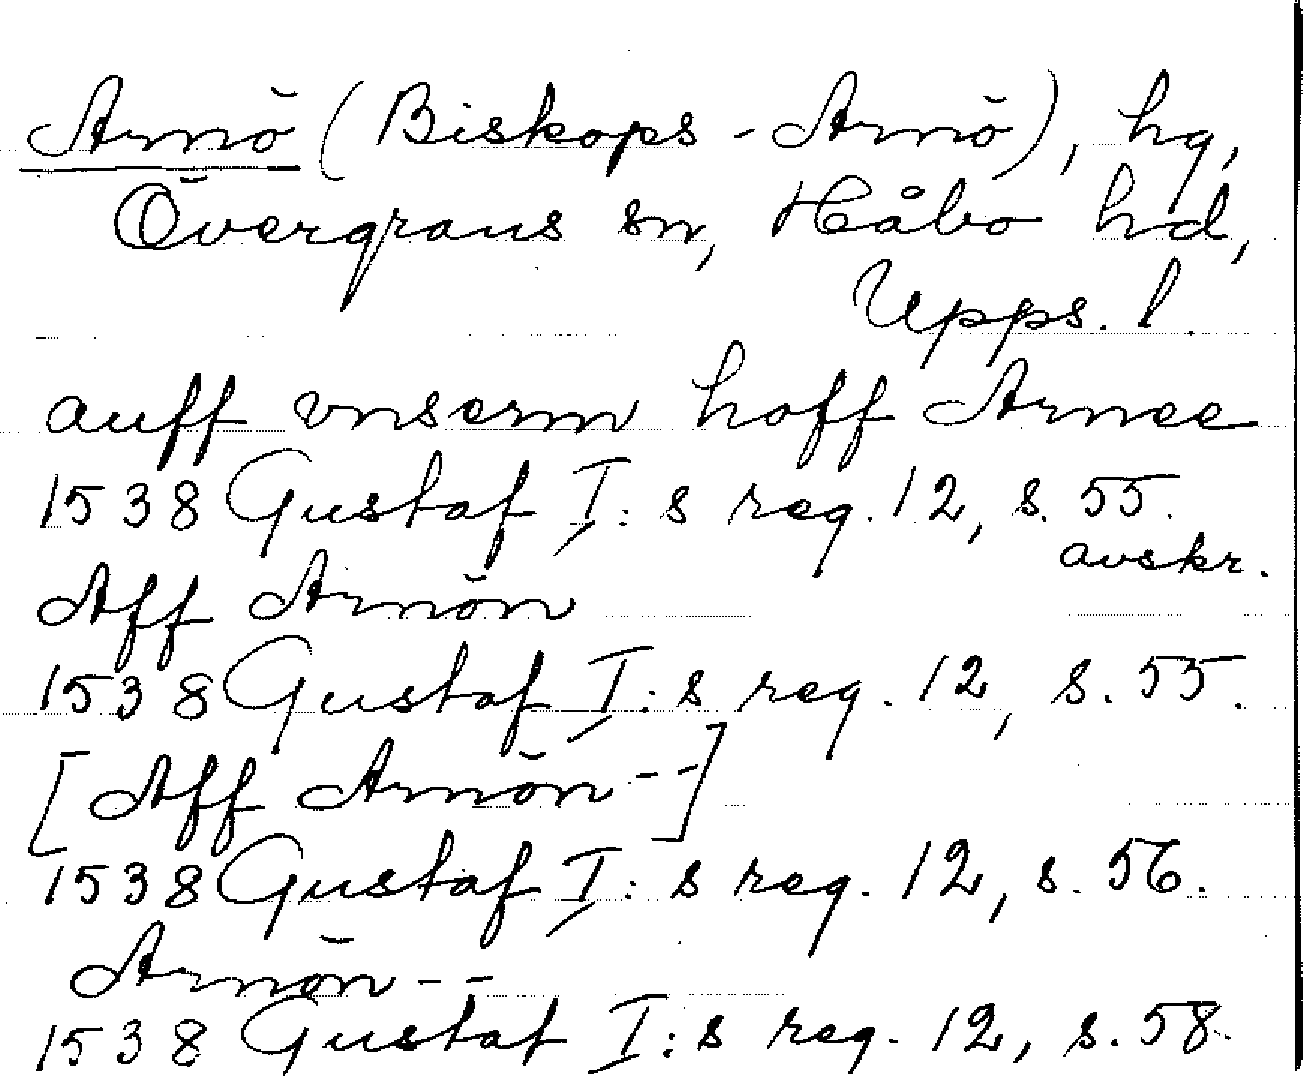 Arnö (Biskops-Arnö), hg,
Övergrans sn, Håbo hd,
Upps. l.
auff vnserm hoff Arnee
1538 Gustaf I:s reg. 12, s. 55.
avskr.
Aff Arnön
1538 Gustaf I:s reg. 12, s. 55.
[Aff Arnön--]
1538 Gustaf I:s reg. 12, s. 56.
Arnön--
1538 Gustaf I:s reg. 12, s. 58.